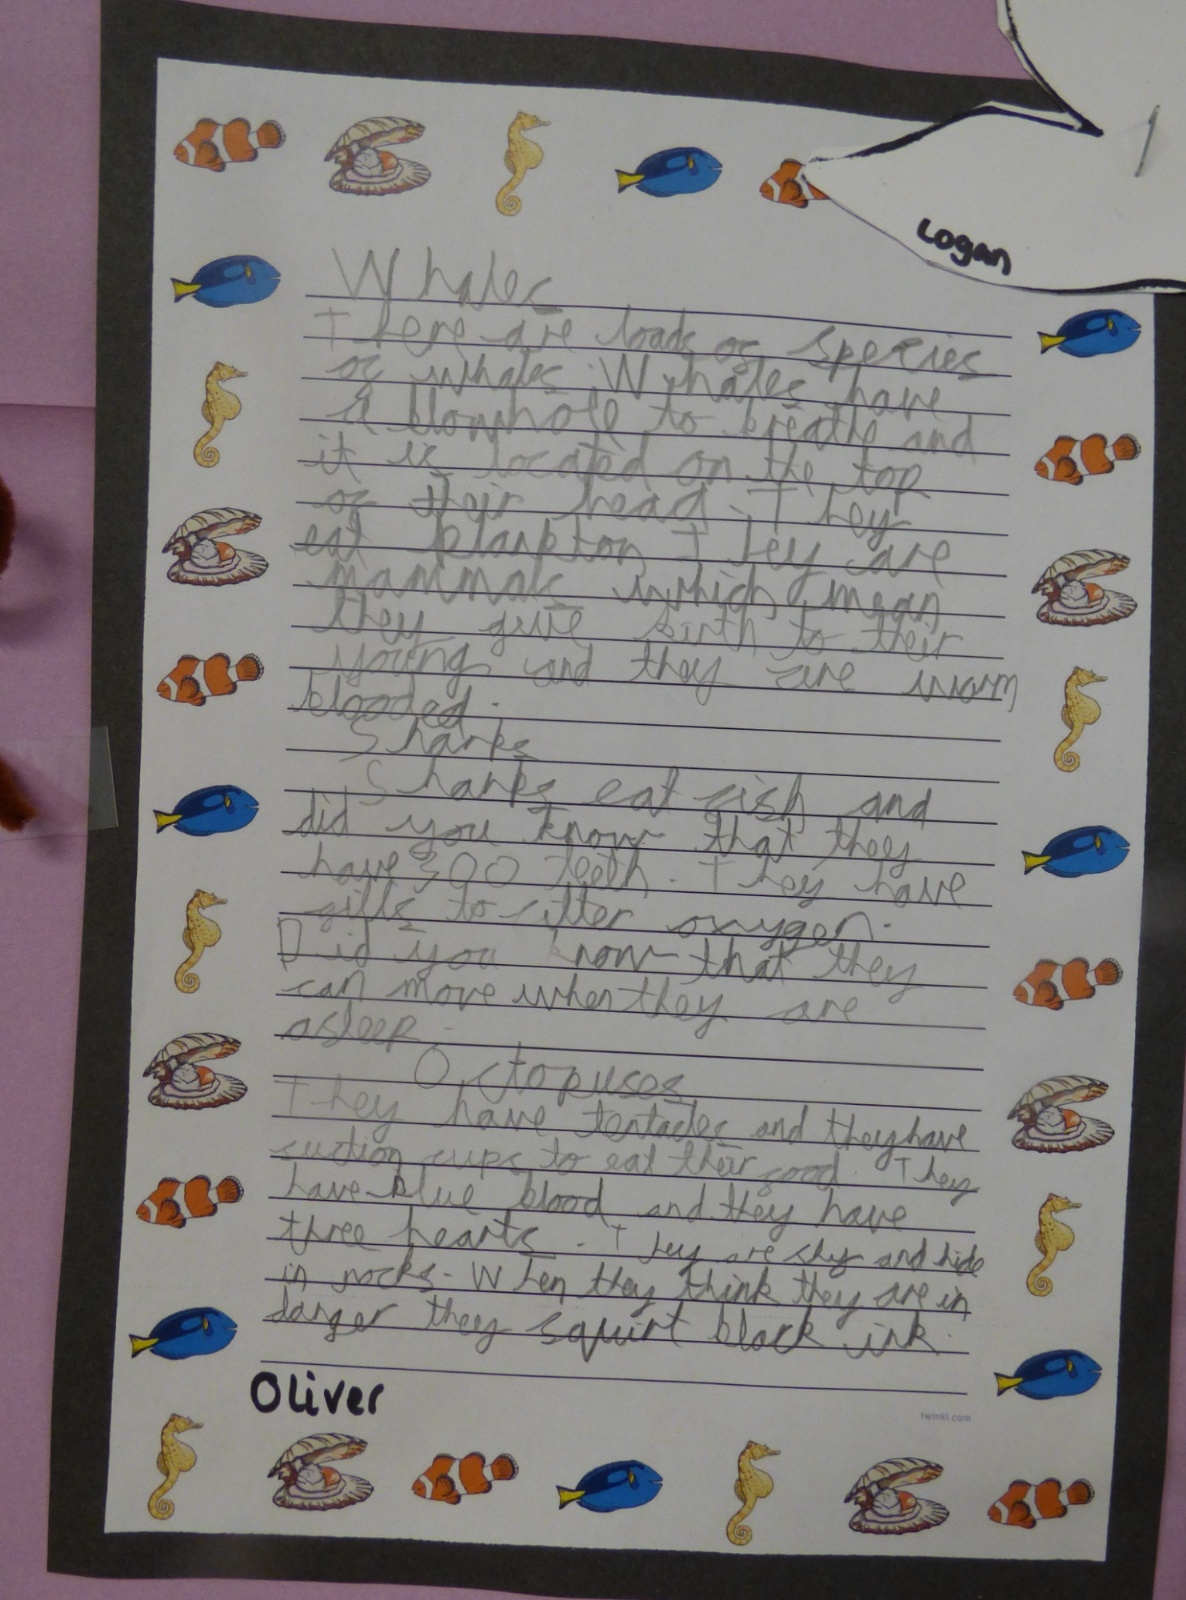 Logan
Whales
There are loads of species
of whales. Whales have
a blowhole to breathe and
it is located on the top
of their head. They
eat plankton They are
mammals which mean
they give birth to their
young and they are warm
blooded.
Sharks
Sharks eat fish and
did you know that they
have 300 teeth. They have
gills to filter oxygen.
Did you know that they
can move when they are
asleep.
Octopuses
They have tentacles and they have
suction cups to eat their food. They
have blue blood and they have
three hearts. They are shy and hide
in rocks. When they think they are in
danger they squirt black ink.
Oliver
twinkl.com